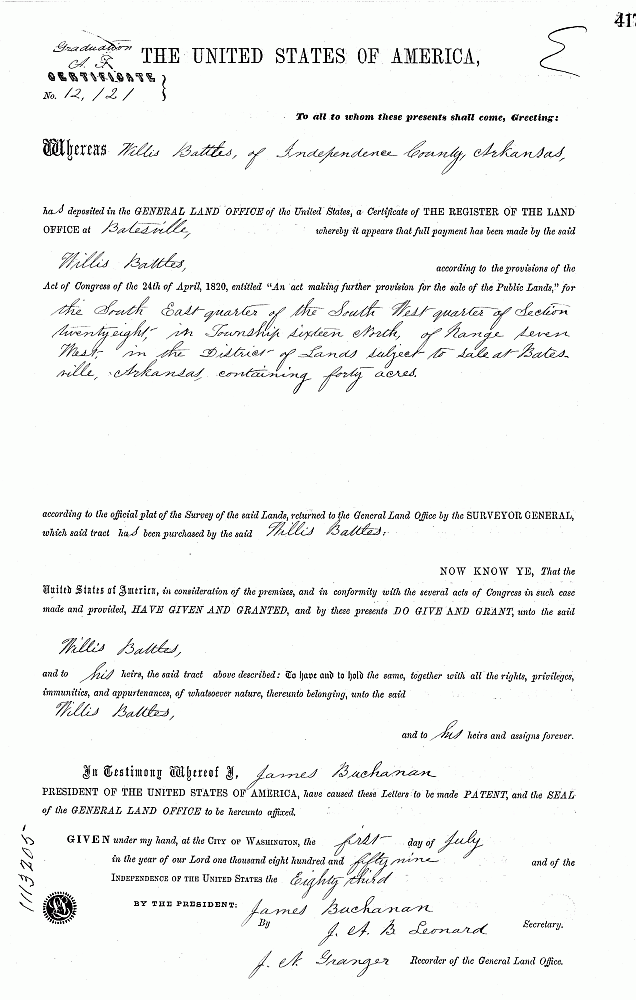 417
Graduation
A. F.
CERTIFICATE
No. 12,121
THE UNITED STATES OF AMERICA,
To all to whom these presents shall come, Greeting:
Whereas Willis Battles, of Independence County, Arkansas,
has deposited in the GENERAL LAND OFFICE of the United States, a Certificate of THE REGISTER OF THE LAND
OFFICE at Batesville, whereby it appears that full payment has been made by the said
Willis Battles, according to the provisions of the
Act of Congress of the 24th of April, 1820, entitled "An act making further provision for the sale of the Public Lands," for
the South East quarter of the South West quarter of Section
twenty eight, in Township sixteen North, of Range seven
West, in the District of Lands subject to sale at Bates-
ville, Arkansas, containing forty acres.
according to the official plat of the Survey of the said Lands, returned to the General Land Office by the SURVEYOR GENERAL,
which said tract has been purchased by the said Willis Battles.
NOW KNOW YE, That the
United States of America, in consideration of the premises, and in conformity with the several acts of Congress in such case
made and provided, HAVE GIVEN AND GRANTED, and by these presents DO GIVE AND GRANT, unto the said
Willis Battles,
and to his heirs, the said tract above described: To have and to hold the same, together with all the rights, privileges,
immunities, and appurtenances, of whatsoever nature, thereunto belonging, unto the said
Willis Battles,
and to his heirs and assigns forever.
In Testimony Whereof I, James Buchanan
PRESIDENT OF THE UNITED STATES OF AMERICA, have caused these Letters to be made PATENT, and the SEAL
of the GENERAL LAND OFFICE to be hereunto affixed.
GIVEN under my hand, at the CITY OF WASHINGTON, the first day of July
in the year of our Lord one thousand eight hundred and fifty nine and of the
INDEPENDENCE OF THE UNITED STATES the Eighty third
BY THE PRESIDENT: James Buchanan
By J. A. B. Leonard Secretary.
J. N. Granger Recorder of the General Land Office.
1113205